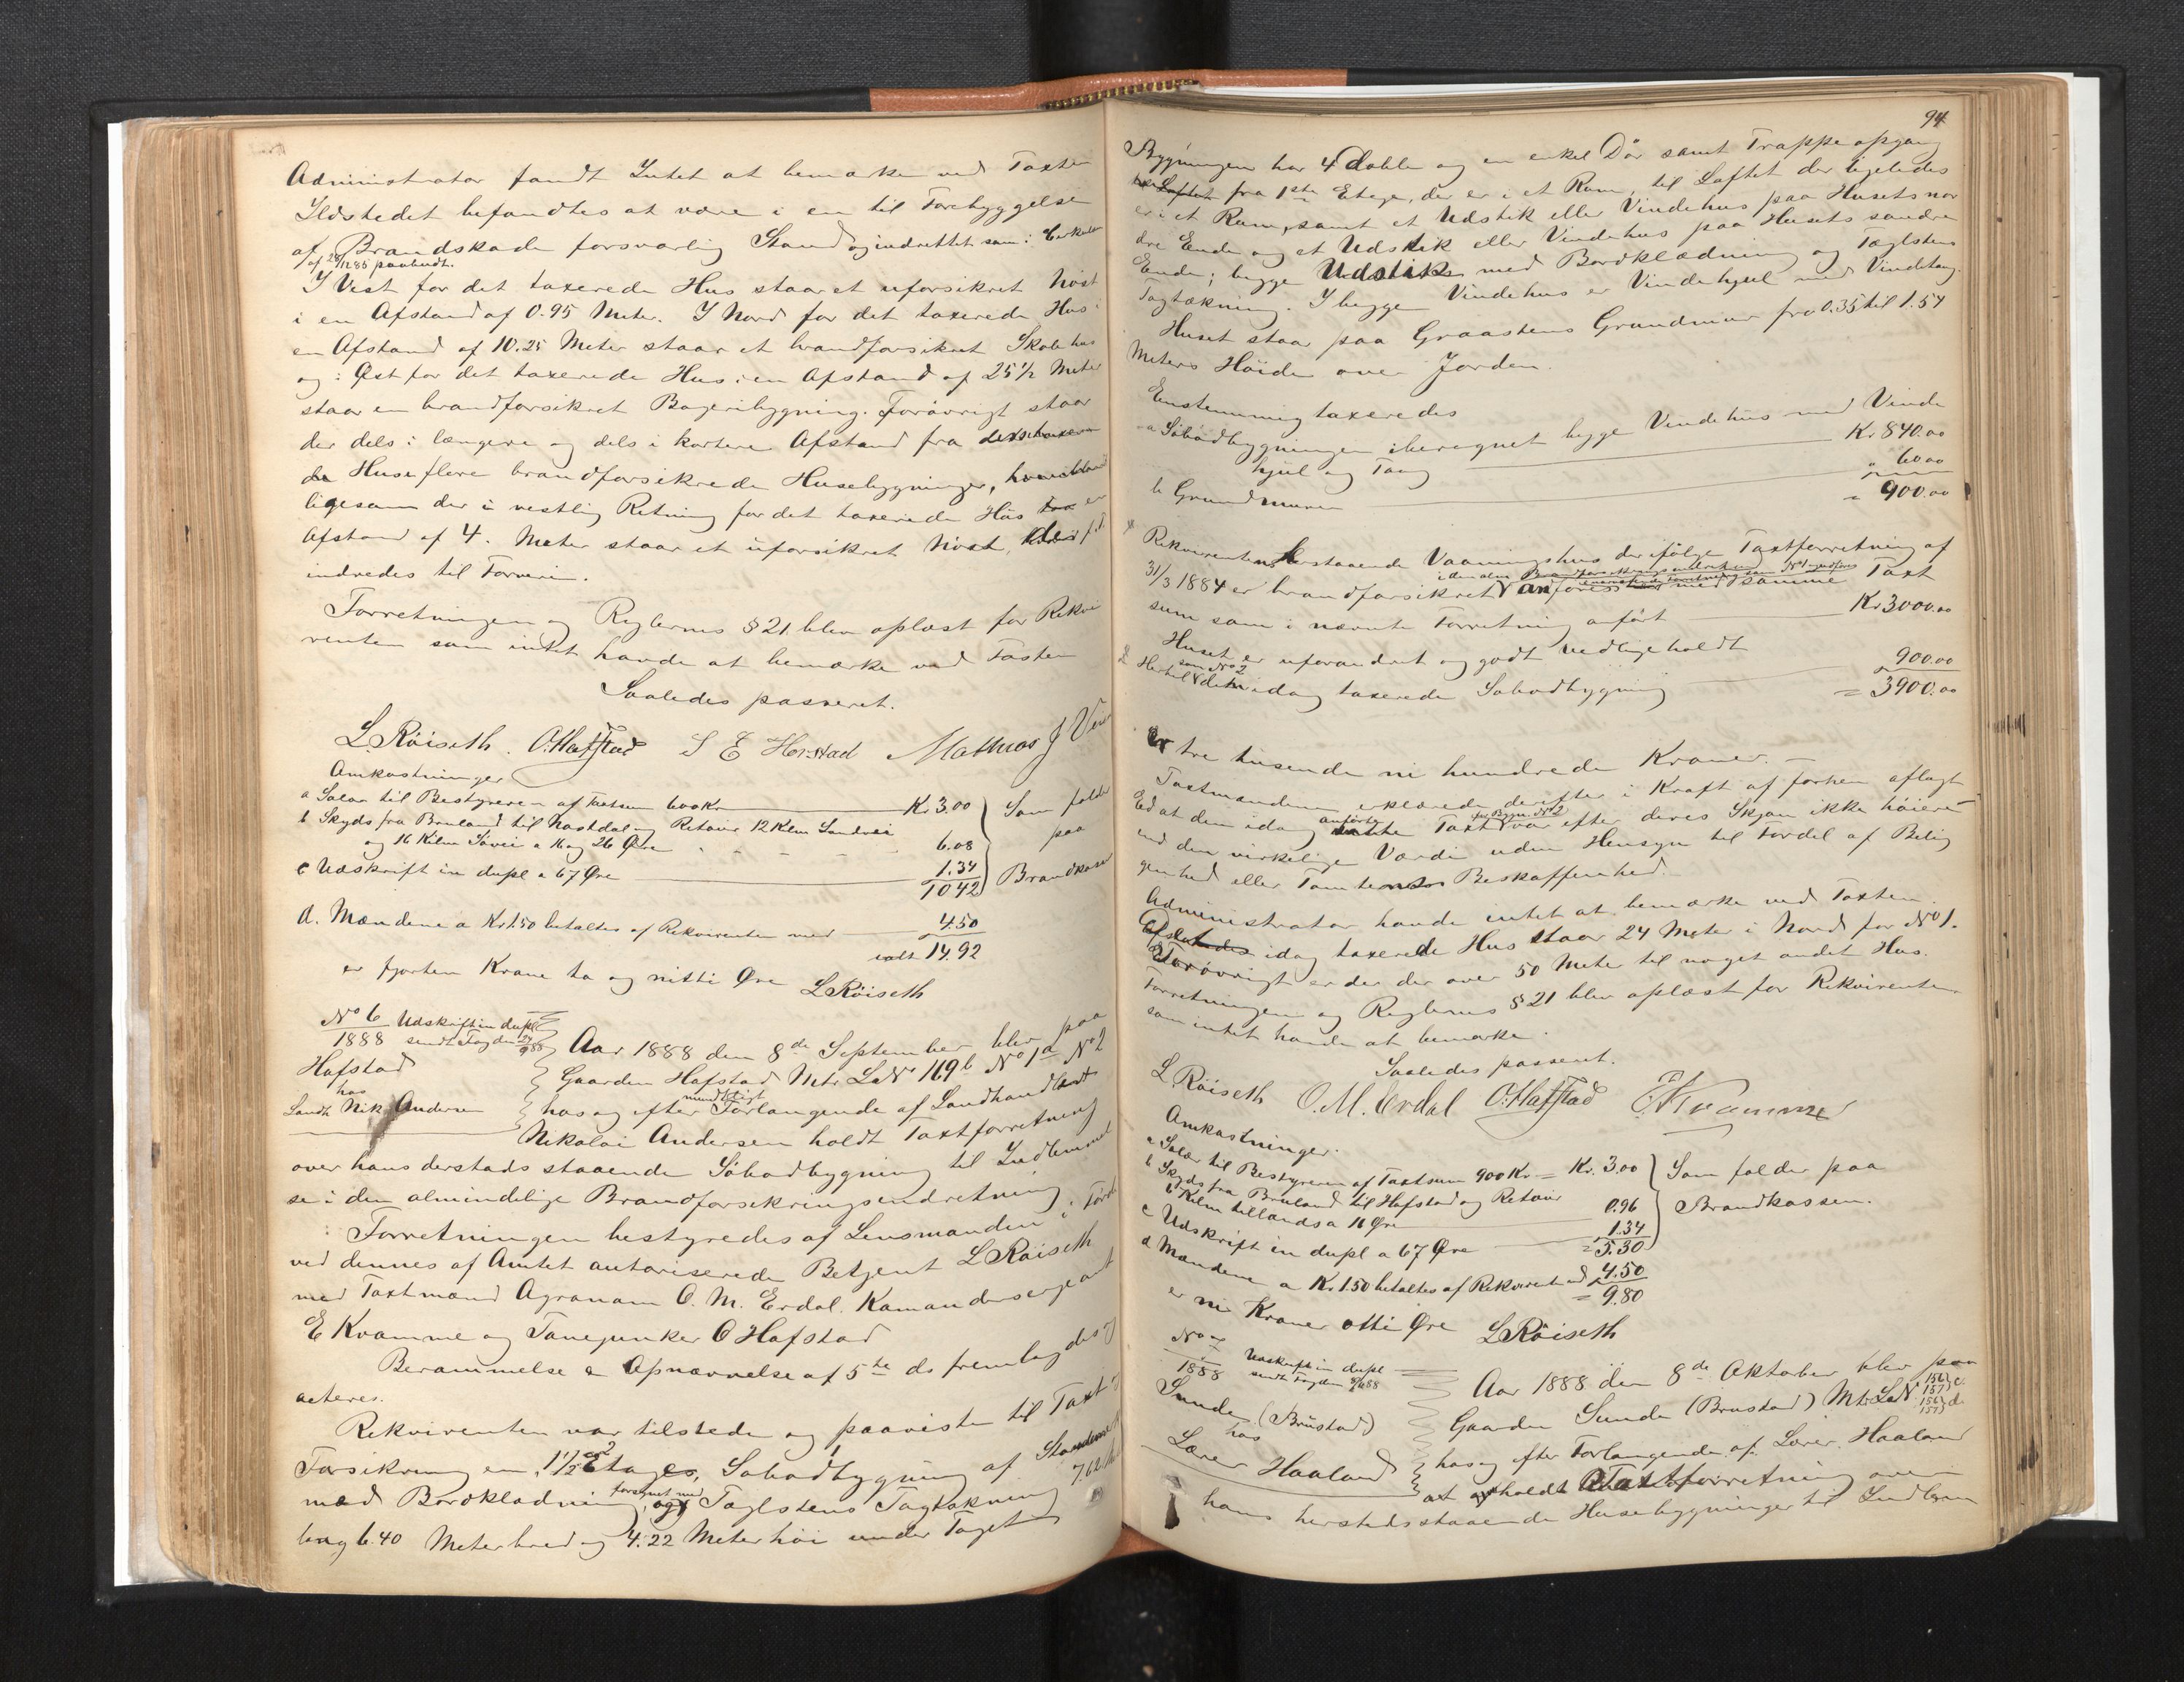 Administrator fandt Intet at bemærke ved Taxten
Ildstedet befandtes at være i en til Forebyggelse
af Brandskade forsvarlig Stand og indrettet som i Cirkulær
af 28/12 85 paabudt.
I Vest for det taxerede Hus staar et uforsikret Nøst
i en Afstand af 0.95 Meter. I Nord for det taxerede Hus i
en Afstand af 10.25 Meter staar et brandforsikret Skolehus
og i Øst for det taxerede Hus i en Afstand af 25 1/2 Meter
staar en brandforsikret Bageribygning. Forøvrigt staar
der dels i længere og dels i kortere Afstand fra det taxere
de Huse flere brandforsikrede Husebygninger, hvoriblandt
ligesom der i vestlig Retning for det taxerede Hus en
Afstand af 4. Meter staar et uforsikret Nøst,
indredes til Farveri.
Forretningen og Reglernes § 21 blev oplæst for Rekvi
renten som intet havde at bemærke ved Taxten
Saaledes passeret.
L. Röiseth. O. Hafstad S E Horstad Mathias J
Omkostninger
a Salær til Bestyreren af Taxtsum 600 Kr Kr. 3.00 Som falder
b Skyds fra Bruland til Nastdal og Retour 12 Kilm Landvei
og 16 Kilm Søvei a 16 og 26 Øre 6.08 paa
c Udskrift in dupl a 67 Øre 1.34
10 42 Brandkassen
d. Mændene a Kr 1.50 betaltes af Rekvirenten med 4.50
ialt 14.92
er fjorten Krone to og nitti Øre L Röiseth
No 6 Udskrift in dupl
1888 sendt Fogden 24/9 88
Hafstad
hos
Landh Nik Andersen
Aar 1888 den 8de September blev paa
Gaarden Hafstad Mtr. LNo 169 b No 1a No 2
hos og efter mundtligt Forlangende af Landhandler
Nikolai Andersen holdt Taxtforretning
over hans derstads staaende Søbodbygning til Indlemmel
se i den almindelige Brandforsikringsindretning.
Forretningen bestyredes af Lensmanden i Førde
ved dennes af Amtet autoriserede Betjent L Röiseth
med Taxtmænd Agronom O. M. Erdal. Kommandersergeant
E Kvamme og Fanejunker O Hafstad
Berammelse & Opnævnelse af 5te ds fremlagdes og
acteres.
Rekvirenten var tilstede og paaviste til Taxt og
Forsikring en 1 1/2 Etages, Søbodbygning af
med Bordklædning, forsynet med Taglstens Tagtækning 7.62 M
lang 6.40 Meter bred og 4.22 Meter høi under Taget
94
Bygningen har 4 doble og en enkel Dör samt Trappeopgang
fra 1ste Etage, der er i et Rum, til Loftet der ligeledes
er i et Rum, samt et Udstik eller Vindehus paa Husets nor
dre Ende og et Udstik eller Vindehus paa Husets søndre
Ende; begge Udstik med Bordklædning og Taglstens
Tagtækning. I begge Vindehus er Vindehjul med Vindetoug.
Huset staar paa Graastens Grundmur fra 0.35 til 1.54
Meters Höide over Jorden.
Enstemmig taxeredes
a Søbodbygningen iberegnet begge Vindehus med Vinde
hjul og Toug Kr 840.00
b Grundmuren " 60 00
= 900.00
Rekvirentens herstaaende Vaaningshus der ifølge Taxtforretning af
31/3 1884 er brandforsikret anföres med samme Taxt
sum som i nævnte Forretning anført Kr 3000.00
Huset er uforandret og godt vedligeholdt
Hertil som No 2 den idag taxerede Søbodbygning 900.00
= 3900.00
er tre tusende ni hundrede Kroner.
Taxtmændene erklærede derefter i Kraft af forhen aflagt
Ed at den idag anförte Taxt for Bygn. No 2 var efter deres Skjøn ikke høiere
end den virkelige Værdi uden Hensyn til Fordel af Belig
genhed eller Tomtens Beskaffenhed.
Administrator havde intet at bemærke ved Taxten.
idag taxerede Hus staar 24 Meter i Nord for No 1.
Forøvrigt er der over 50 Meter til noget andet Hus.
Forretningen og Reglernes § 21 blev oplæst for Rekvirenten
som intet havde at bemærke.
Saaledes passeret.
L Röiseth O. M. Erdal O. Hafstad E. Kvamme
Omkostninger.
a Salær til Bestyreren af Taxtsum 900 Kr = Kr. 3.00 Som falder paa
b Skyds fra Bruland til Hafstad og Retour
6 Kilm tillands a 16 Øre 0.96 Brandkassen.
c Udskrift in dupl a 67 Øre 1.34
= 5.30
d Mændene a Kr 1.50 betaltes af Rekvirent med 4.50
= 9.80
er ni Kroner otti Øre L Röiseth
No 7 Udskrift in dupl
1888 sendt Fogden
Sunde (Brustad)
hos
Lærer Haaland
Aar 1888 den 8de Oktober blev paa
Gaarden Sunde (Brustad) Mtr. LNo 156 157 c. 156 157 d.
hos og efter Forlangende af Lærer Haaland
holdt Taxtforretning over
hans herstedsstaaende Husebygninger til Indlem